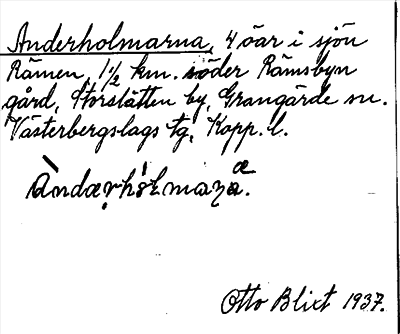 Anderholmarna, 4 öar i sjön
Rämen, 1 1/2 km. söder Rämsbyn
gård, Storslätten by, Grangärde sn.
Västerbergslags tg, Kopp. l.
Otto Blixt 1937.